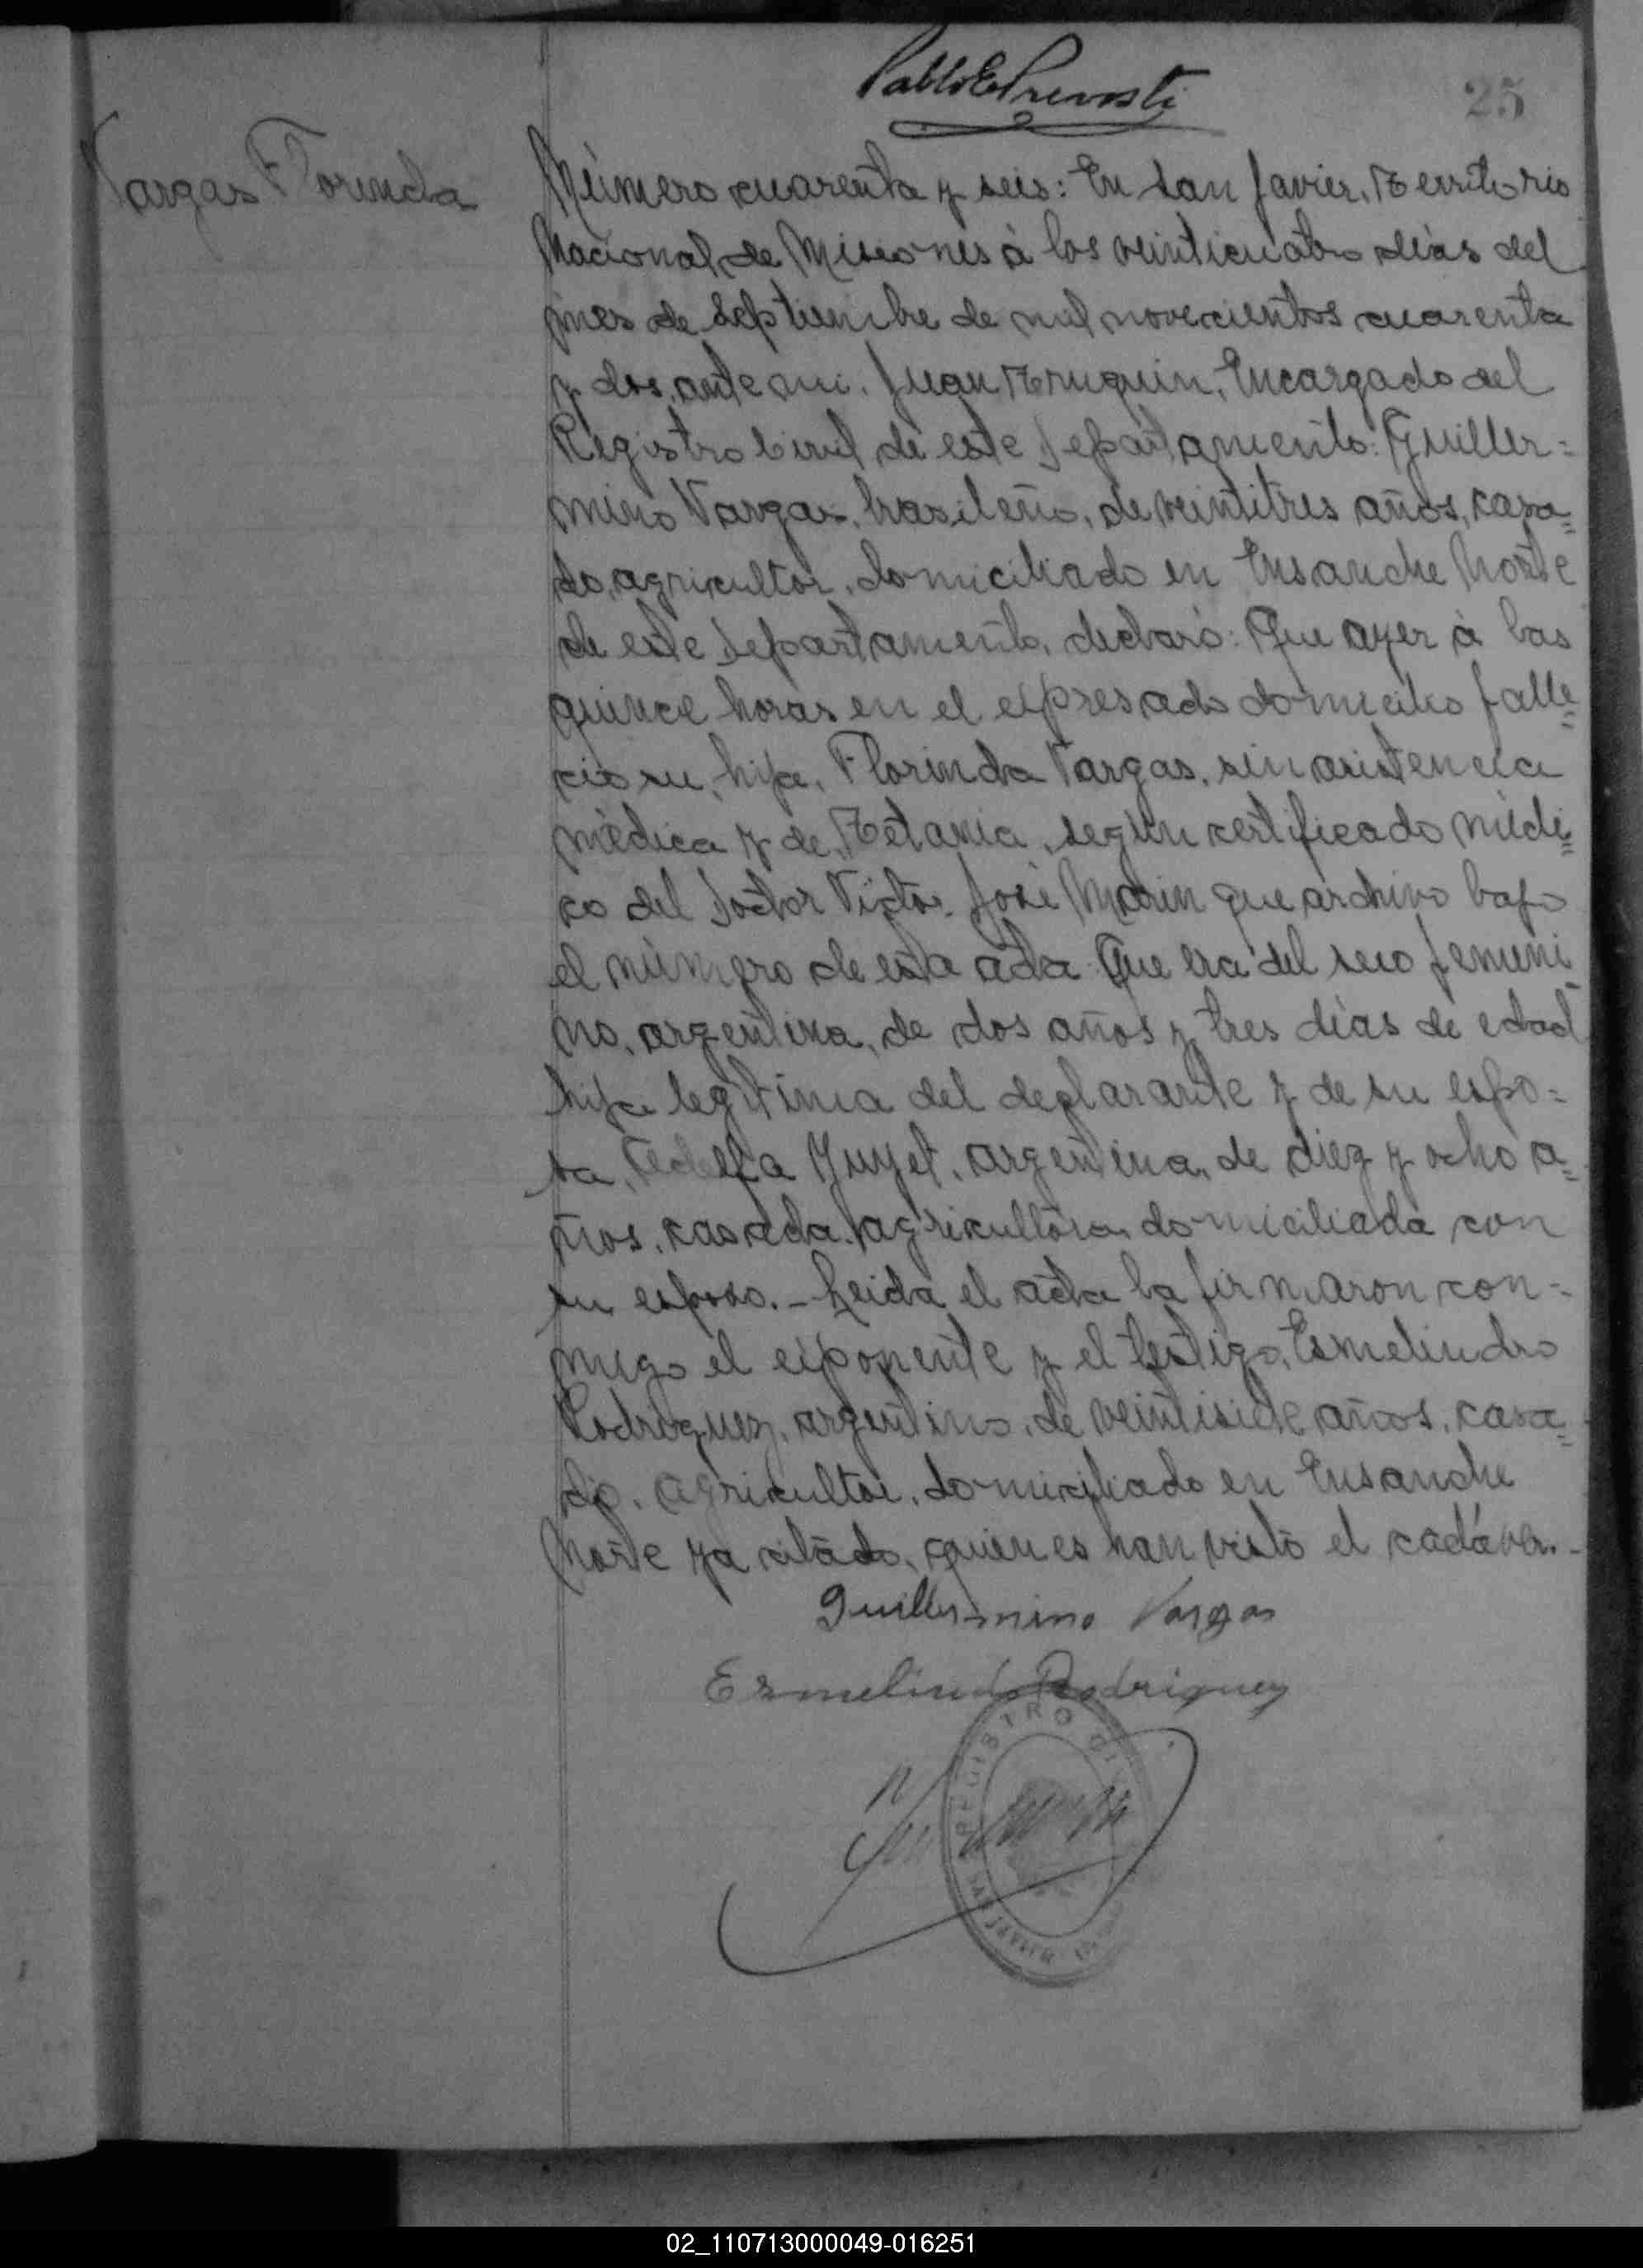 Pablo E Prevosti
25
Vargas Florinda
Número cuarenta y seis: En San Javier, Territorio
Nacional de Misiones à los veinticuatro dias del
mes de Septiembre de mil novecientos cuarenta
y dos, ante mi. Juan Truquin, Encargado del
Registro Civil de este Departamento: Guiller=
mino Vargas, brasileño, de veintitres años, casa=
do, agricultor, domiciliado en Ensanche Norte
de este Departamento, declaró: Que ayer à las
quince horas en el expresado domicilio falle=
cio su hija, Florinda Vargas, sin asistencia
mèdica y de Tetania, segùn certificado mèdi=
co del Doctor Victor José Marin que archivo bajo
el nùmero de esta acta. Que era del sexo femeni
no, argentina, de dos años y tres dias de edad
hija legitima del declarante y de su espo=
sa, argentina, de diez y ocho a=
ños, casada, agricultora, domiciliada con
su esposo.- Leida el acta la firmaron con=
migo el exponente y el testigo, Esmelindro
Rodriguez, argentino, de veintisiete años, casa=
do, agricultor, domiciliado en Ensanche
Norte ya citado, quienes han visto el cadáver.-
Guillermino Vargas
Esmelindo Rodriguez
REGISTRO CIVIL
SAN JAVIER
02_110713000049-016251